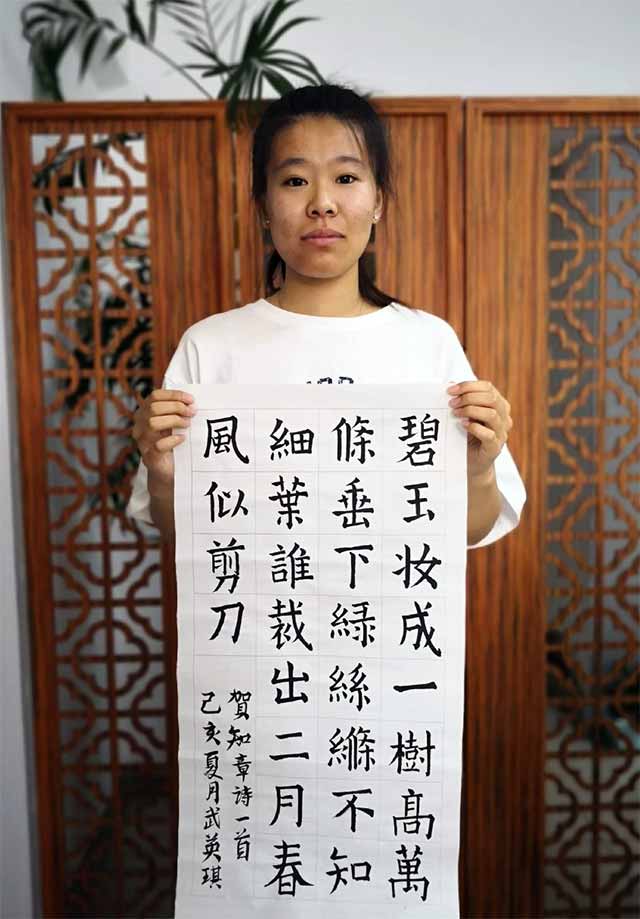 碧玉妆成一樹髙萬
條垂下緑絲縧不知
細葉誰裁出二月春
風似剪刀
賀知章诗一首
己亥夏月武英琪